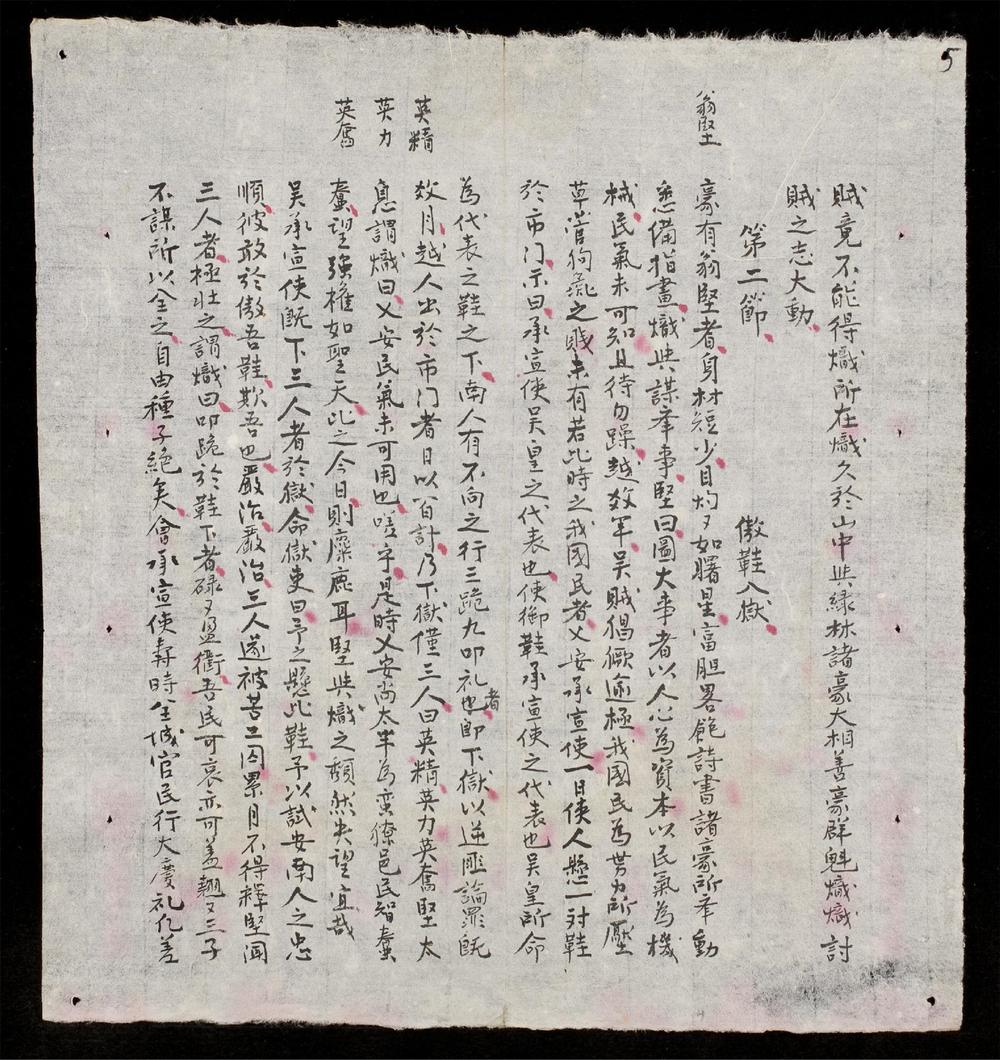 5
賊竟不能得熾所在熾久於山中與綠林諸豪大相善豪群魁熾熾討
賊之志大動
第二節 傲鞋入獄
翁堅
豪有翁堅者身材短少目灼〻如曙星富胆畧飽詩書諸豪所牽動
悉備指畫熾與謀牽事堅曰圖大事者以人心為資本以民氣為機
械民氣未可知且待勿躁越数年吳賊猖獗逾極我國民為势力所壓
草菅狗彘之賤未有若此時之我國民者乂安承宣使一日使人懸一对鞋
於市门示曰承宣使吳皇之代表也使御鞋承宣使之代表也吳皇所命
為代表之鞋之下南人有不向之行三跪九叩礼也者即下獄以逆匪論罪既
数月越人出於市门者日以百計乃下獄僅三人曰英精英力英奮堅太
英精
英力
息謂熾曰乂安民氣未可用也嗟乎是時乂安尚太半為蛮獠邑民智蠢
英奮
蠢望強權如聖天比之今日則麋鹿耳堅與熾之頽然失望宜哉
吳承宣使既下三人者於獄命獄吏曰予之懸此鞋予以試安南人之忠
順彼敢於傲吾鞋欺吾也嚴治嚴治三人遂被苦工囚累月不得釋堅聞
三人者極壯之謂熾曰叩跪於鞋下者碌〻盈衢吾民可哀亦可羞翹〻三子
不謀所以全之自由種子絶矣會承宣使壽時全城官民行大慶礼仪差